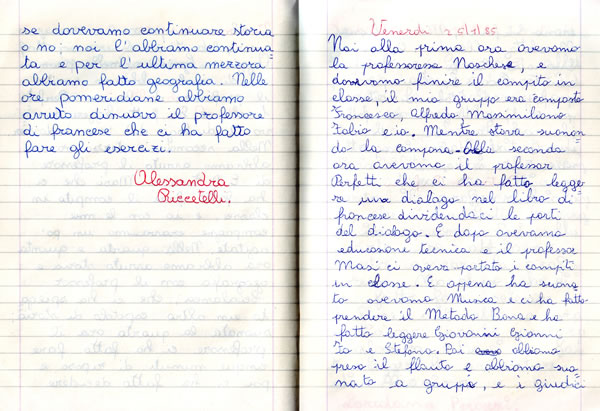 se dovevamo continuare storia
o no; noi l'abbiamo continua=
ta e per l'ultima mezzora
abbiamo fatto geografia. Nelle
ore pomeridiane abbiamo
avuto dinuovo il professore
di francese che ci ha fatto
fare gli esercizi.
Alessandra
Puccetelli.
Venerdì 25/1/85
Noi alla prima ora avevamo
la professoressa Noschese, e
dovevamo finire il compito in
classe, il mio gruppo era composto
Francesco, Alfredo, Massimiliano
Fabio e io. Mentre stava suonon
do la campana. Alla seconda
ora avevamo il professor
Perfetti che ci ha fatto legge=
re un dialogo nel libro di
francese dividendoci le parti
del dialogo. E dopo avevamo
educazioni tecnica e il professor
Masi ci aveva portato i compiti
in classe. E appena ha suona
to avevamo Musica e ci ha fatto
prendere il Metodo Bona e ha
fatto leggere Giovanni Gianni
Za e Stefano. Poi abbiamo
preso il flauto e abbiamo suo
nato a gruppi, e i giudici